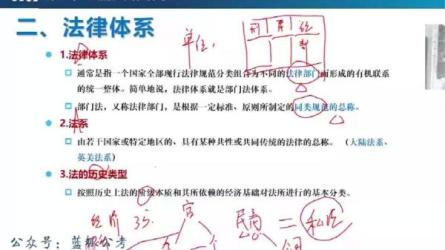 二、法律体系
单位:
1.法律体系
通常是指一个国家全部现行法律规范分类组合为不同的法律部门而形成的有机联系
的统一整体。简单地说，法律体系就是部门法体系。
部门法，又称法律部门，是根据一定标准、原则所制定的同类规范的总称。
2.法系
由若干国家或特定地区的、具有某种共性或共同传统的法律的总称。（大陆法系、
英美法系）
3.法的历史类型
按照历史上法的阶级本质和其所依赖的经济基础对法所进行的基本分类。
35
官
民商 二 私法
一个
公众号：蓝
公考